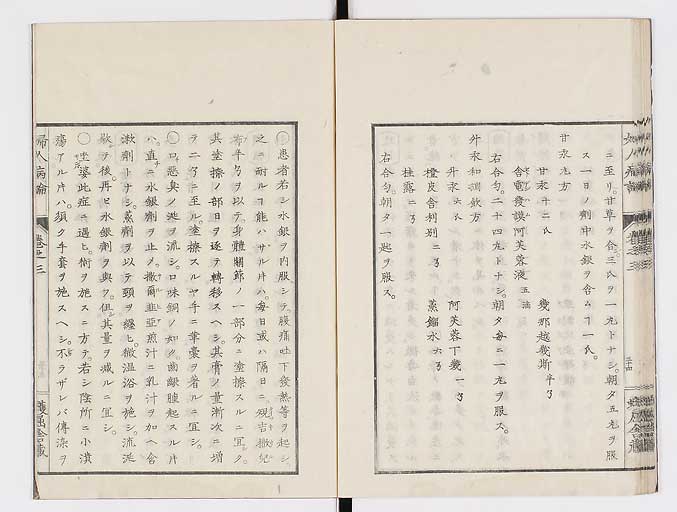 ニ至リ。甘草ヲ合シ三氏ヲ一丸トナシ朝夕五丸ヲ服
ス一日ノ劑中水銀ヲ含ム丁一氏。
甘汞丸方
甘汞十二氏 幾那越幾斯半ヲ
含電發謨阿芙蓉液五滴
右合匀。二十四丸トナシ。朝夕毎ニ一丸ヲ服ス。
外汞和調飲方
升汞六氏 阿芙蓉丁幾一ヲ
橙皮舎利別二ヲ 蒸餾水六ヲ
桂露二ヲ
右合匀朝夕一匙ヲ服ス。
婦人病論 卷之三
〇患者若シ水銀ヲ内服シテ。腹痛吐下發熱等ヲ起シ。
之ニ耐ルヿ能ハザル片ハ。毎日或ハ隔日ニ
半ヲヲ以テ身體關節ノ一部分ニ塗擦スルニ宜ク。
其塗擦ノ部日ヲ逐テ轉移スヘシ其膏ノ量漸次ニ増
ヲ二ヲニ至ル。塗擦スルヤ手ニ韋嚢ヲ着ルニ宜シ。
〇口。惡臭ノ涎ヲ流シ。口味銅ノ如ク齒齦腫起スル片
ハ。直チニ水銀劑ヲ止メ。撒爾維亞煎汁ニ乳汁ヲ加ヘ含
漱劑トナシ。蒸劑ヲ以テ頸ヲ纏ヒ。微温浴ヲ施シ。流涎
歇ヲ後。再ヒ水銀劑ヲ與フ。但其量ヲ减ルニ宜シ。
〇坐婆此症ニ遇ヒ。術ヲ施スニ方テ。若シ陰所ニ小潰
瘍アル片ハ。須ク手套ヲ施スヘシ。不ラザレバ傳染ヲ
婦人病論 卷之三